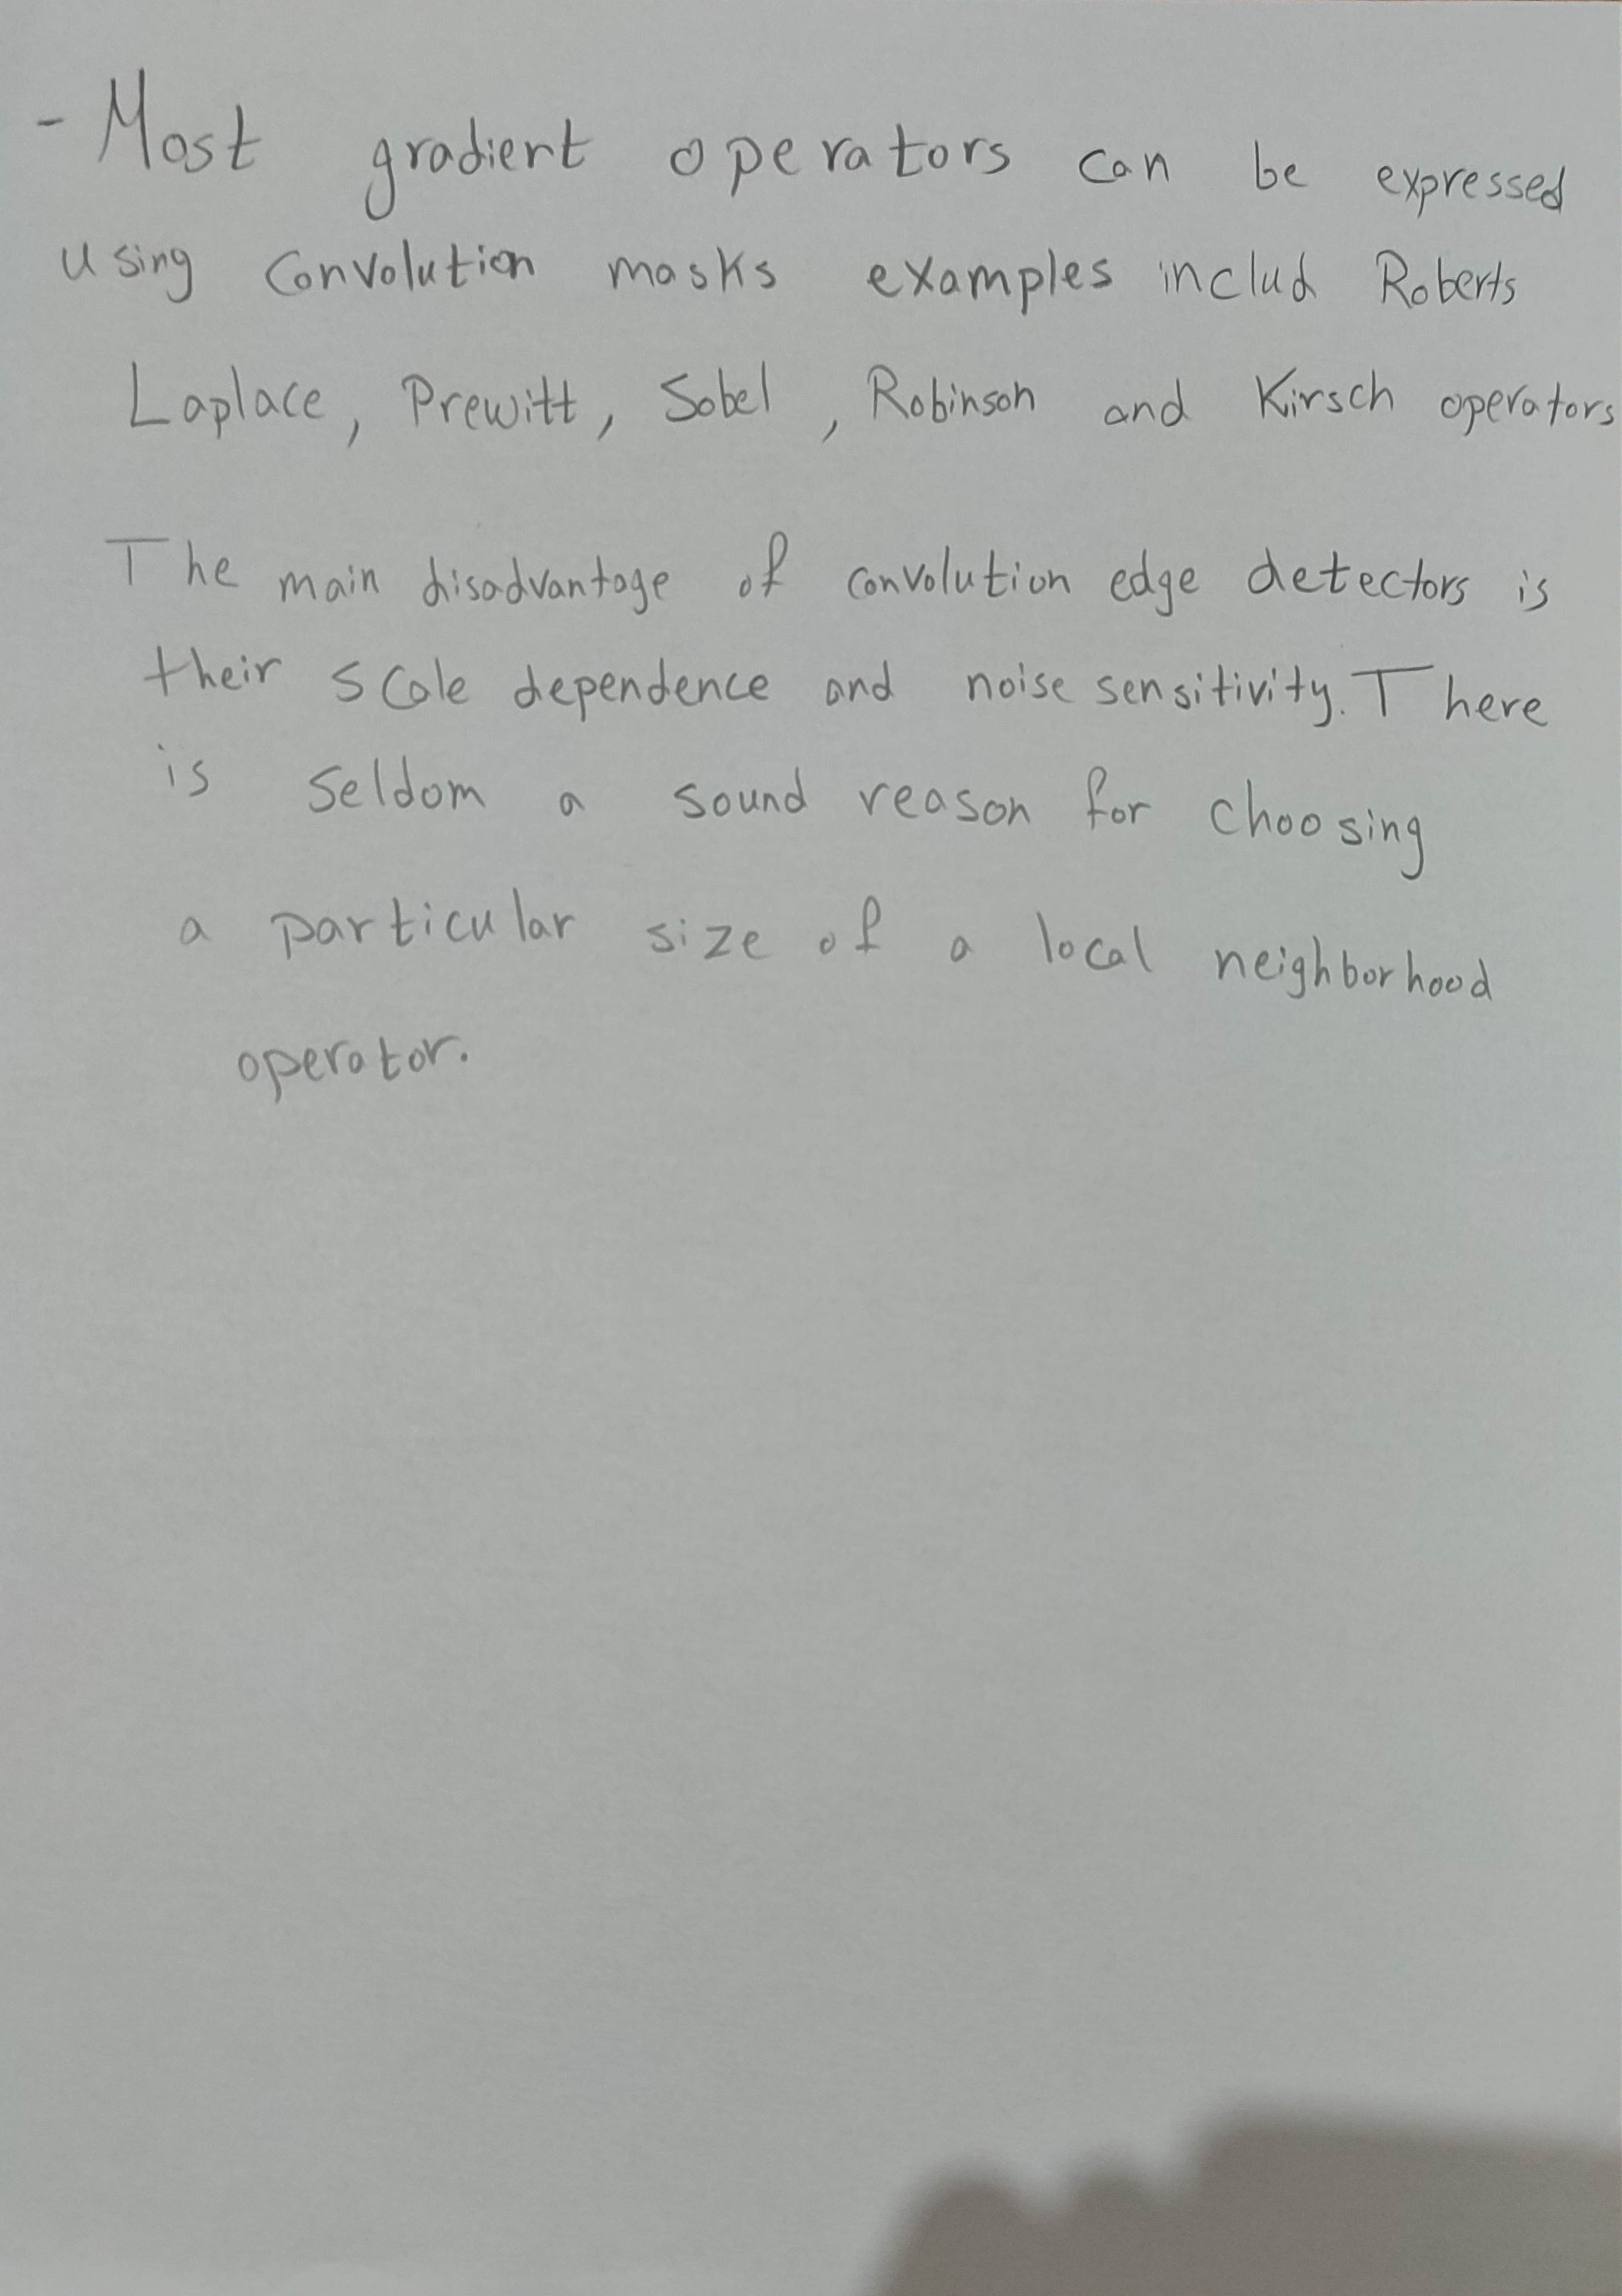 - Most gradient operators can be expressed
using Convolution masks examples includ Roberts
Laplace, Prewitt, Sobel, Robinson and Kirsch operators
The main disadvantage of convolution edge detectors is
their scale dependence and noise sensitivity. There
is seldom a sound reason for choosing
a particular size of a local neighborhood
operator.